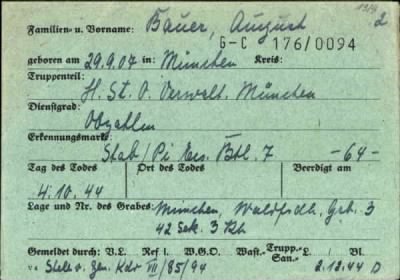 1914 2
Familien- u. Vorname: Bauer, August
G-C 176/0094
geboren am 29.9.07 in: München Kreis:
Truppenteil: H. St. O. Verwalt. München
Dienstgrad: Obzahlm
Erkennungsmarke: Stab/Pi Ers. Btl. 7 -64-
Tag des Todes Ort des Todes Beerdigt am
4.10.44
Lage und Nr. des Grabes: München, Waldfrdh., Grb. 3
42 Sek. 3 Rh
Gemeldet durch: V.L. Ref I. W.G.O. Wast.- Trupp.- San.- L. Bl.
Stelv. Gen. Kdo VII/85/94 2.12.44 D